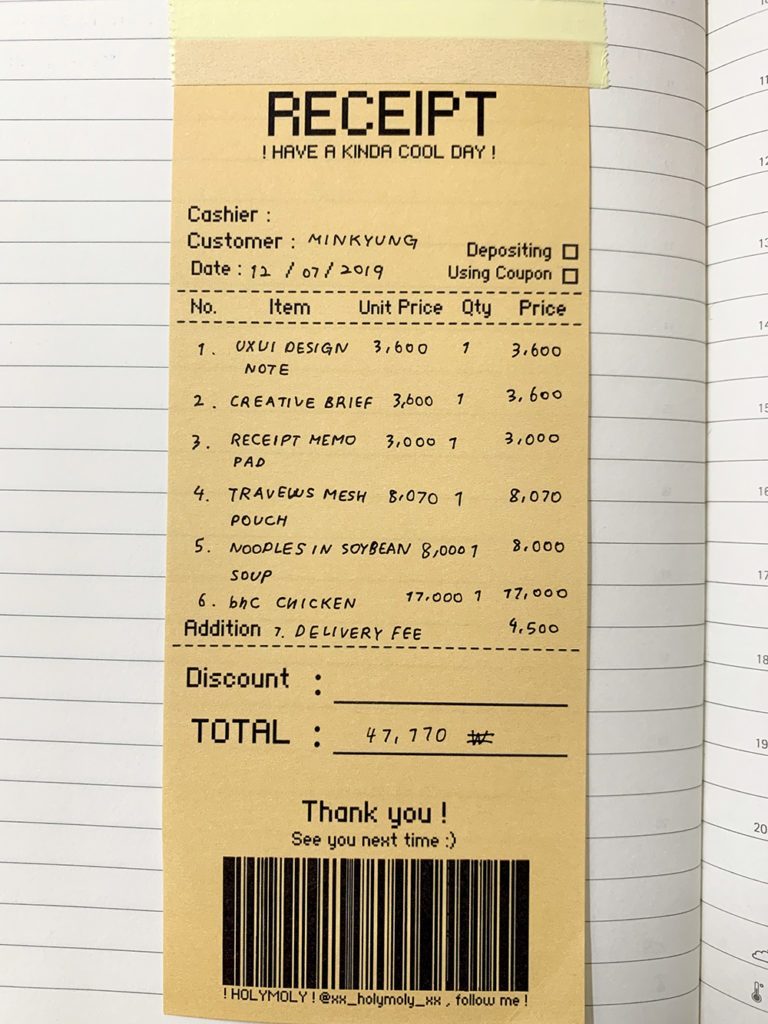 RECEIPT
! HAVE A KINDA COOL DAY !
Cashier :
Customer : MINKYUNG
Depositing
Date : 12 / 07 / 2019
Using Coupon
No. Item Unit Price Qty Price
1. UXUI DESIGN 3,600 1 3,600
NOTE
2. CREATIVE BRIEF 3,600 1 3,600
3. RECEIPT MEMO 3,000 1 3,000
PAD
4. TRAVELUS MESH 8,070 1 8,070
POUCH
5. NOODLES IN SOYBEAN 8,000 1 8,000
SOUP
6. bhC CHICKEN 17,000 1 17,000
Addition 7. DELIVERY FEE 4,500
Discount :
TOTAL : 47,770 ₩
Thank you !
See you next time :)
! HOLYMOLY ! @xx_holymoly_xx , follow me !
11
12
13
14
15
16
17
18
19
20